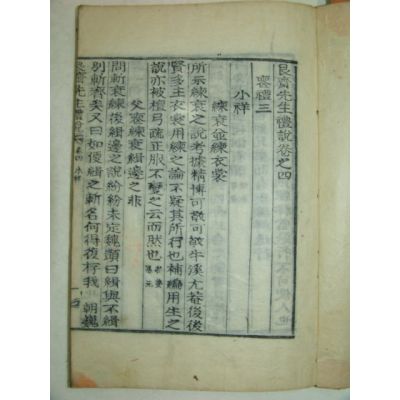 艮齋先生禮說卷之四
喪禮三
小祥
練衰並練衣裳
所示練衰之說考據精博可敬可敬牛溪尤菴後
賢多主衣裳用練之論不疑其所行也
說亦被檀弓疏正服不變之云而然也
父喪練衰緝邊之非
問斬衰練後緝邊之說紛紛未定魏類曰緝與不緝
別斬齊矣又曰如復緝之斬名何得復存我 朝
艮齋先生禮說 卷四 小祥